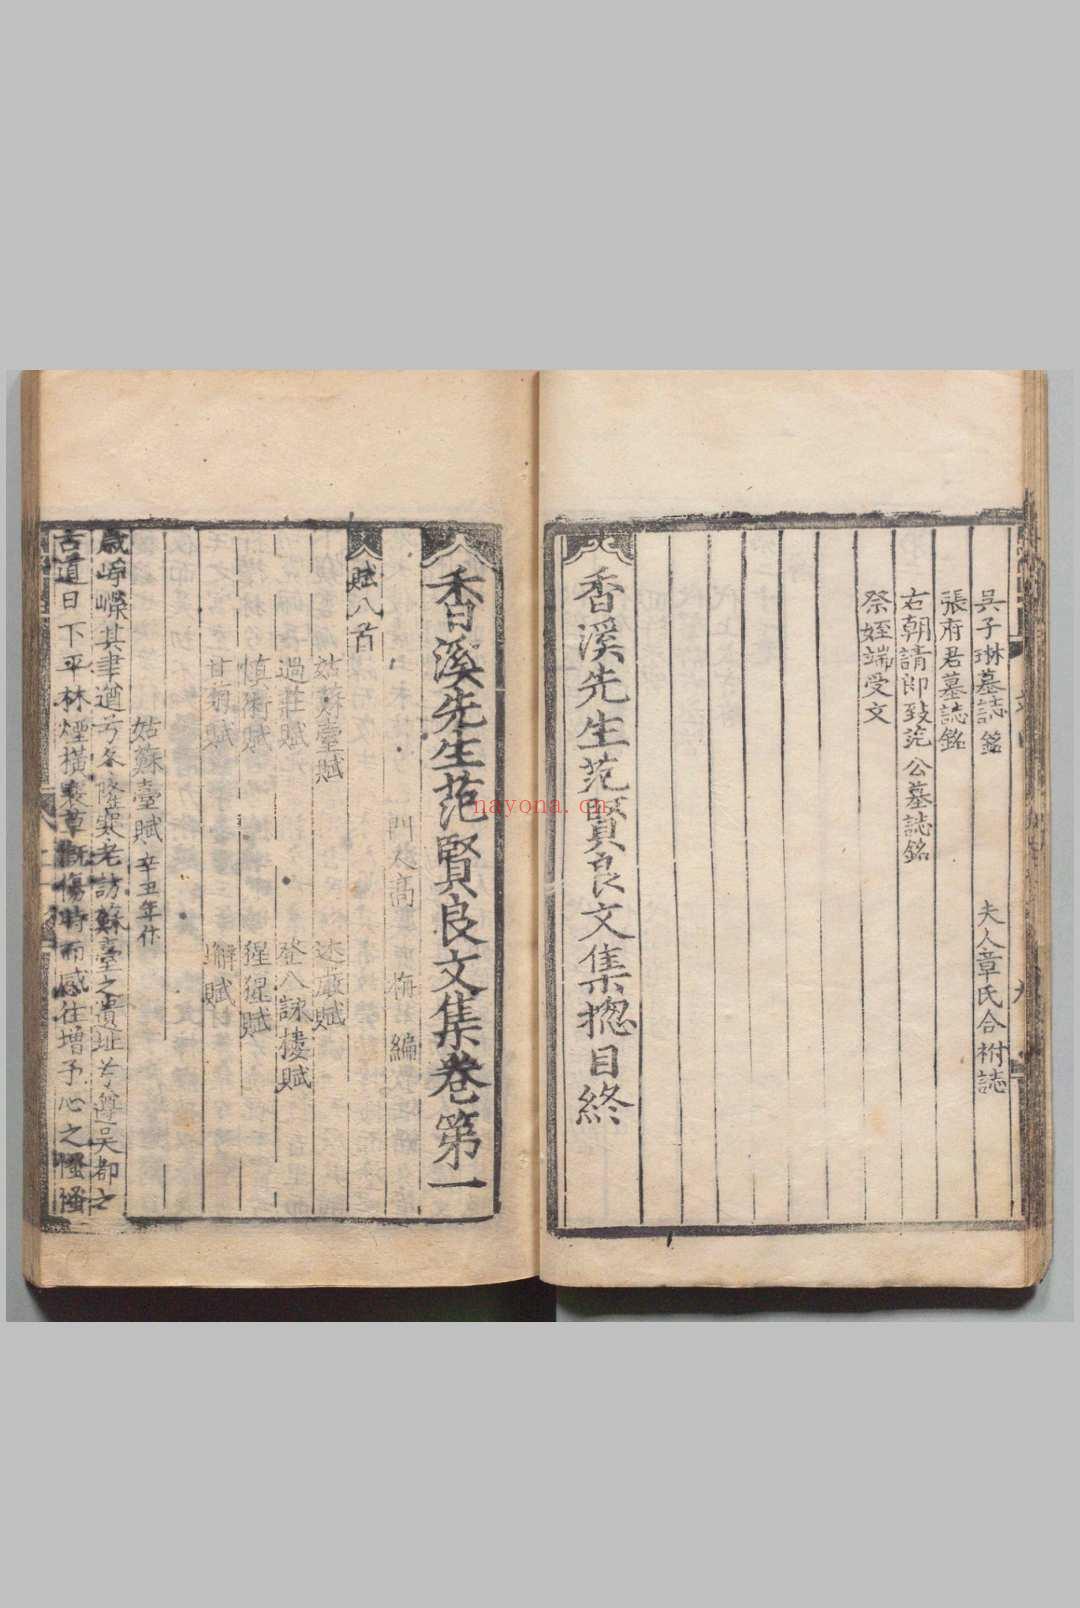 吳子琳墓誌銘　夫人章氏合祔誌
張府君墓誌銘
右朝請郎致范公墓誌銘
祭姪端受文
香溪先生范賢良文集揔目終
香溪先生范賢良文集卷第一
門人高梅編
賦八首
姑蘇臺賦
過莊賦　登八詠樓賦
慎術賦　猩猩賦
解賦
姑蘇臺賦辛丑年作
歲崢嶸其聿遒兮冬隆寒老訪蘇臺之遺址兮遵吳都之
古道日下平林煙橫衰草既傷時而感往增予心之慅慅
nayona.cn